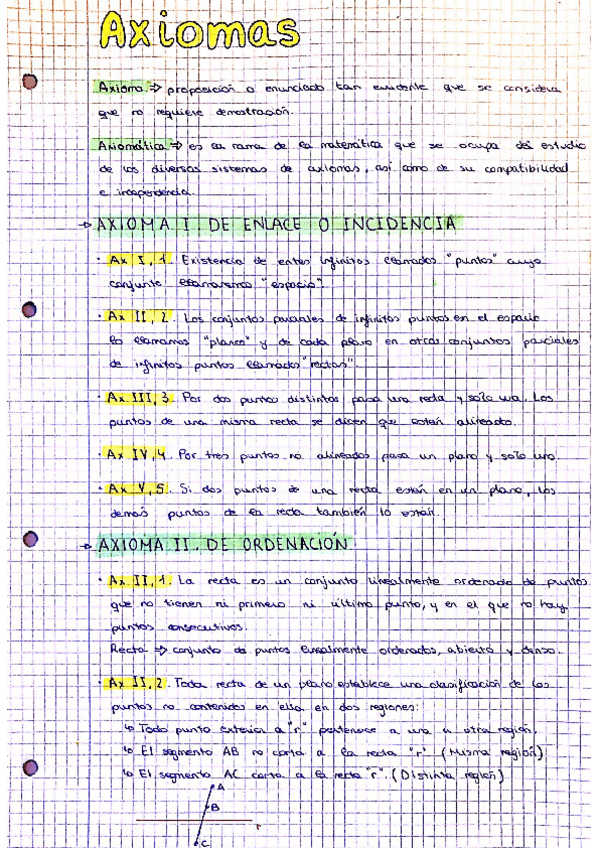 Axiomas
Axioma ⇒ proposición o enunciado tan evidente que se considera
que no requiere demostración.
Axiomática ⇒ es la rama de la matemática que se ocupa del estudio
de los diversos sistemas de axiomas, así como de su compatibilidad
e independencia.
→ AXIOMA I. DE ENLACE O INCIDENCIA
· Ax I, 1. Existencia de entes infinitos llamados "puntos" cuyo
conjunto llamaremos "espacio".
· Ax II, 2. Los conjuntos parciales de infinitos puntos en el espacio
lo llamamos "planos" y de cada plano en otros conjuntos parciales
de infinitos puntos llamados "rectas".
· Ax III, 3. Por dos puntos distintos pasa una recta y solo una. Los
puntos de una misma recta se dicen que están alineados.
· Ax IV, 4. Por tres puntos no alineados pasa un plano y solo uno.
· Ax V, 5. Si dos puntos de una recta están en un plano, los
demás puntos de la recta también lo están.
→ AXIOMA II. DE ORDENACIÓN
· Ax II, 1. La recta es un conjunto linealmente ordenado de puntos
que no tienen ni primero ni último punto, y en el que no hay
puntos consecutivos.
Recta ⇒ conjunto de puntos linealmente ordenados, abierto y denso.
· Ax II, 2. Toda recta de un plano establece una clasificación de los
puntos no contenidos en ella en dos regiones:
↳ Todo punto exterior a "r" pertenece a una u otra región.
↳ El segmento AB no corta a la recta "r" (Misma región)
↳ El segmento AC corta a la recta "r". (Distinta región)
A
B
r
C